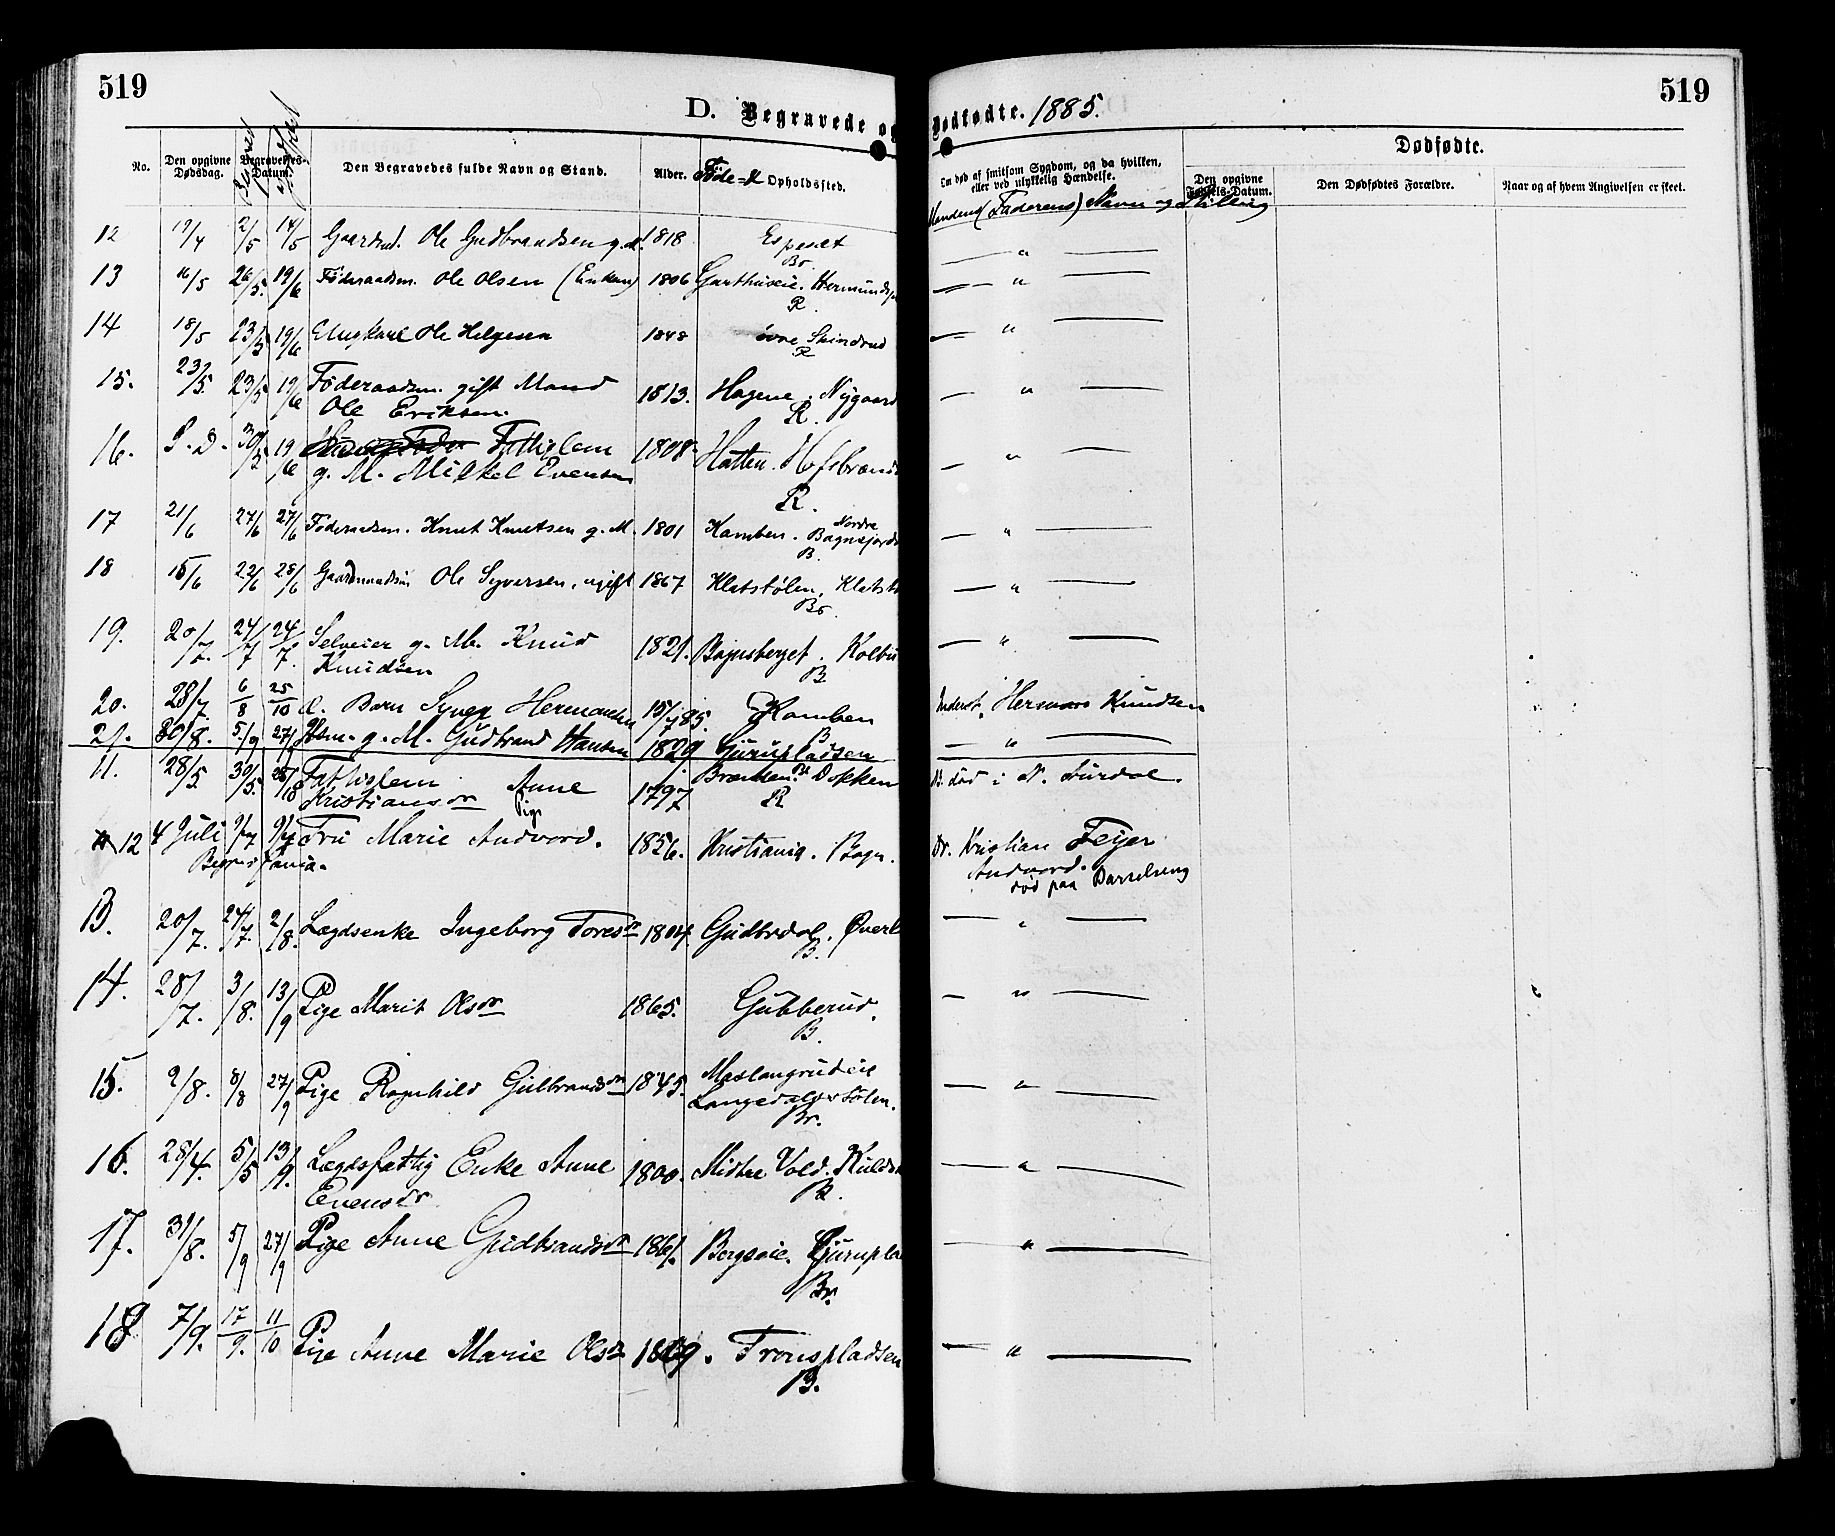 519
519
D. Begravede og Dødfødte. 1885.
No.
Den opgivne Dødsdag.
Begravelses-Datum.
Den Begravedes fulde Navn og Stand.
Alder.
Føde- & Opholdssted.
Om død af smitsom Sygdom, og da hvilken,
eller ved ulykkelig Hændelse.
Mandens (Faderens) Navn og Stilling
Dødfødte.
Den opgivne Fødsels-Datum.
Den Dødfødtes Forældre.
Naar og af hvem Angivelsen er skeet.
12 19/4 2/5 14/5 Gaardmd. Ole Gudbrandsen g. M. 1818 Espeset — " —
Br.
13 16/5 26/5. 19/6 Føderaadsm. Ole Olsen (Enkem) 1806 Garthuseie. — " —
R
14 18/5 23/5 19/6 Ungkarl Ole Helgesen 1848 øvre Skindrud — " —
R
15. 23/5. 23/5 19/6 Føderaadsm. gift Mand 1813. Hagene. Nygaard — " —
Ole Eriksen. R.
16. S. D. 30/5 19/6 Fattiglem 1808 Hatten. — " —
g. M. Mikkel Evensen R.
17 21/6 27/6 27/6 Føderaadsm. Knut Knutsen g. M. 1801 Kamben. Nordre — " —
B.
18 15/6 22/6 28/6 Ole Syversen, ugift 1867 Klatstølen, — " —
Br.
19. 20/7. 24/7 24/7. Selveier g. M. Knud 1821. Bagnsberget. — " —
Knudsen B
20. 28/7. 6/8 25/10 d. Barn Syver Hermansen 15/7 85. Kamben Inderst. Herman Knudsen
B
21. 30/8. 5/9 27/9 Hsm. g. M. Gudbrand Hansen 1829 Gjuruspladsen — " —
Br
11. 28/5 30/5. 25/18 Fattiglem Anne 1797 Brænden. Dokken R. død i N. Aurdal.
Kristiansdr R
12 4 Juli 9/7 9/7 Fru Marie Andvord. 1856. Kristiania. Bagn. Dr. Kristian Feyer
Andvord.
død paa Barselseng
13. 20/7. 24/7. 2/8. Lægdsenke Ingeborg Toresdr 1804 Gudbrdal. — " —
B.
14. 28/7. 3/8. 13/9 Pige Marit Olsdr 1865. Gubberud. — " —
B.
15. 2/8. 8/8 27/9 Pige Ragnhild Gulbrandsdr 1845. Maslangrudeie — " —
Langedalsstølen.
Br.
16. 28/4. 5/5 13/9. Lægdsfattig Enke Anne 1800. Midtre Vold. — " —
Evensdr B.
17. 31/8. 5/9 27/9 Pige Anne Gudbrandsdr 1861. Bergseie. — " —
Br.
18 7/9. 17/9. 11/10 Pige Anne Marie Olsdr 1869. Fronspladsen — " —
B.